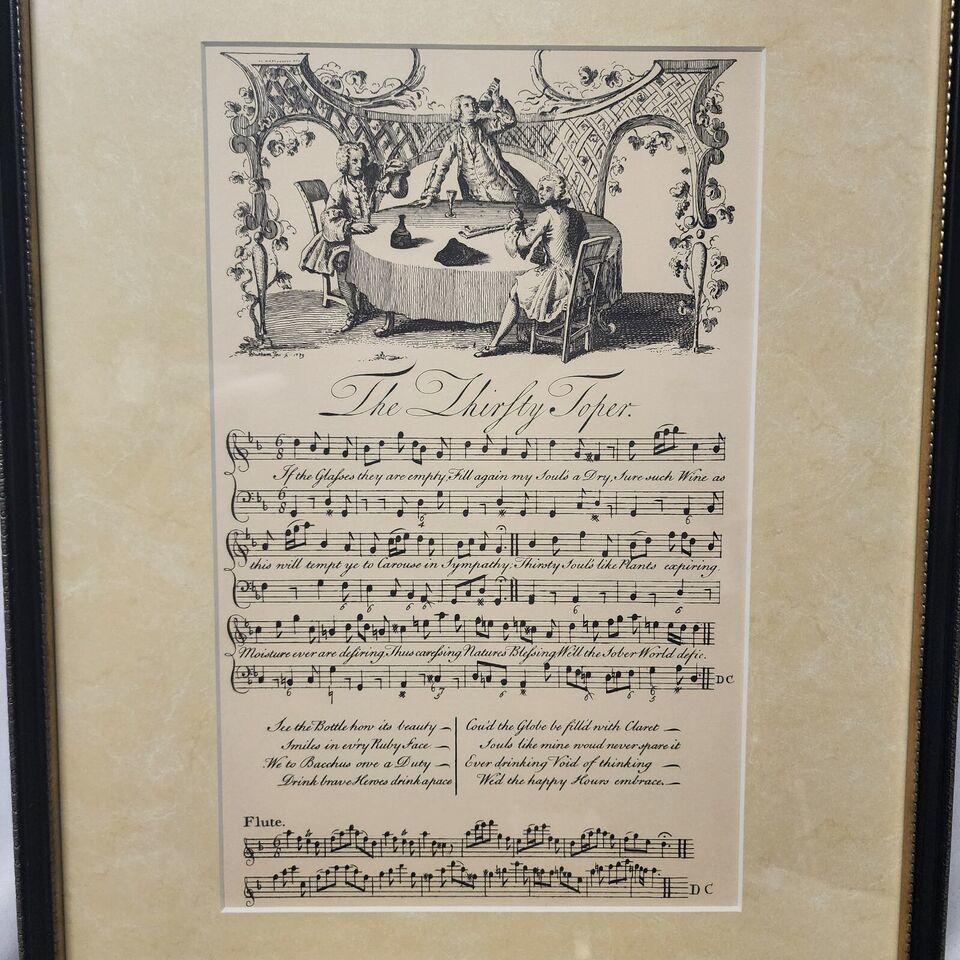 The Thirſty Toper.
If the Glaſses they are empty, Fill again my Soul's a Dry, Sure such Wine as
this will tempt ye to Carouse in Sympathy: Thirsty Soul's like Plants expiring.
Moisture ever are deſiring, Thus careſsing Natures Bleſsing We'll the Sober World defie.
D C
See the Bottle how its beauty
Smiles in ev'ry Ruby Face
We to Bacchus owe a Duty
Drink brave Heroes drink apace
Cou'd the Globe be fill'd with Claret
Souls like mine woud never spare it
Ever drinking Void of thinking
We'd the happy Hours embrace.
Flute.
D C